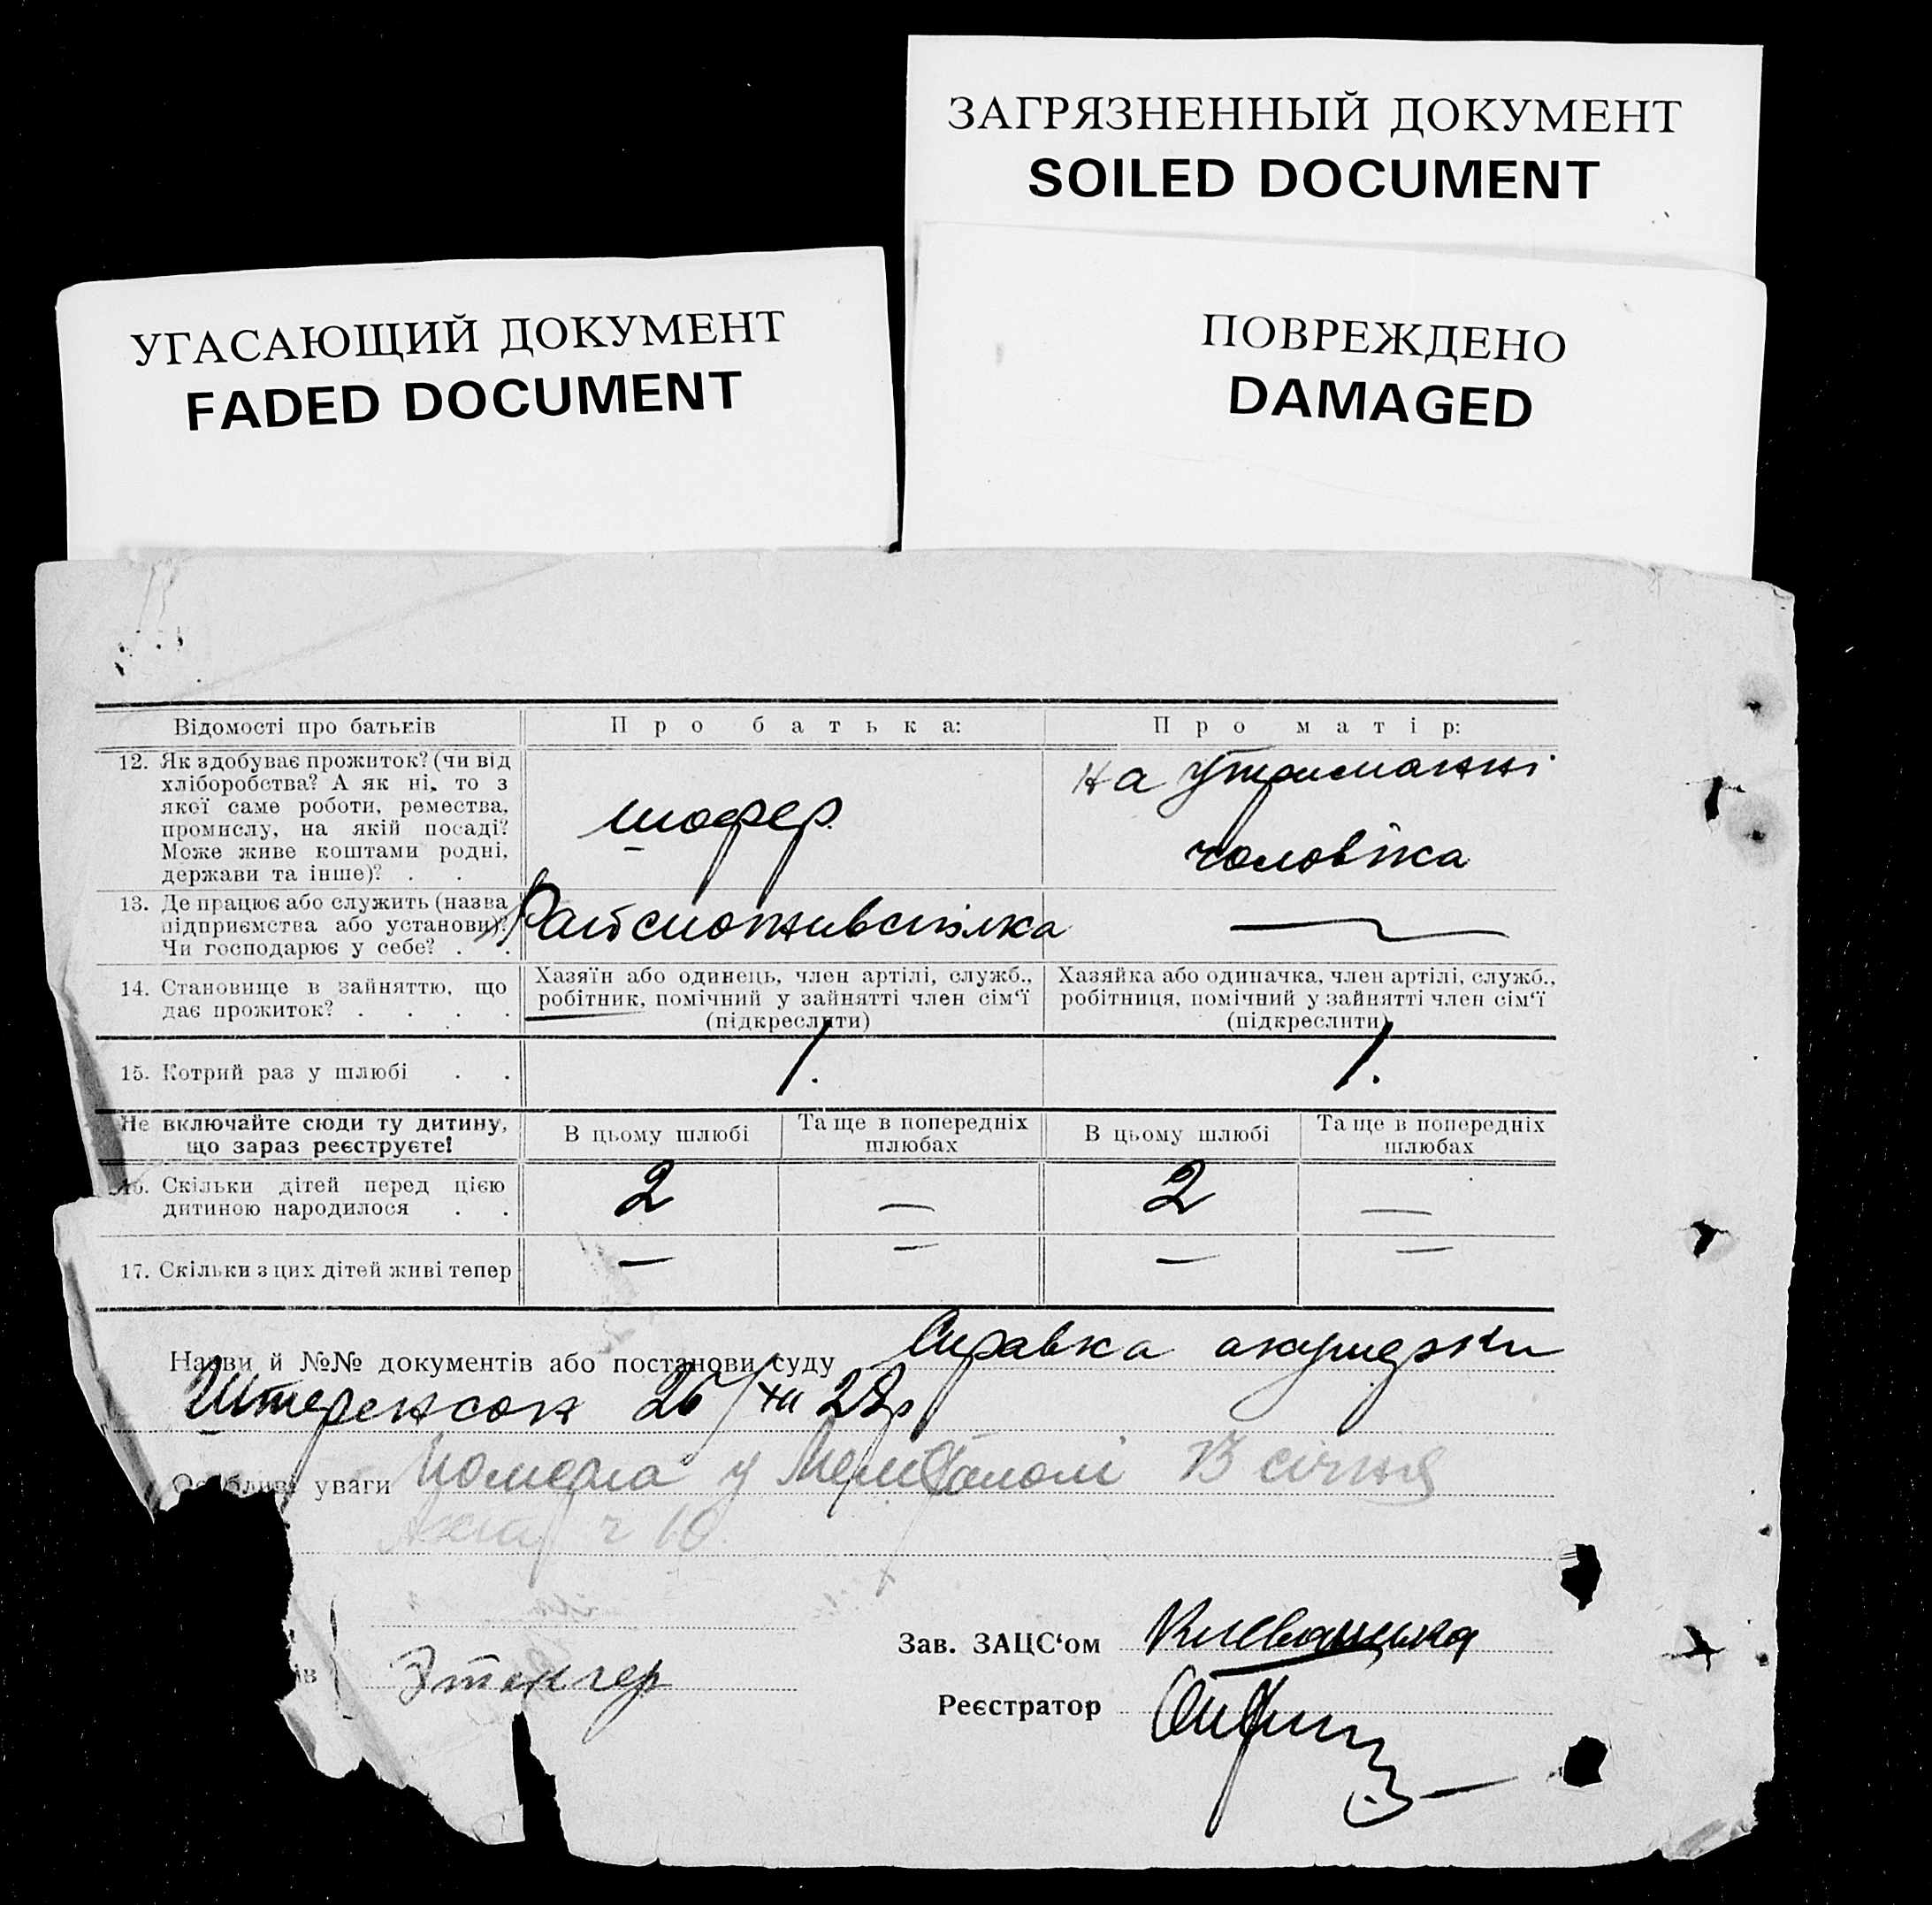 ЗАГРЯЗНЕННЫЙ ДОКУМЕНТ
SOILED DOCUMENT
УГАСАЮЩИЙ ДОКУМЕНТ
FADED DOCUMENT
ПОВРЕЖДЕНО
DAMAGED
Відомості про батьків
Про батька:
Про матір:
12. Як здобуває прожиток? (чи від
хліборобства? А як ні, то з
якої саме роботи, ремества,
промислу, на якій посаді?
Може живе коштами родні,
держави та інше)? . .
шофер
на утриманні
чоловіка
13. Де працює або служить (назва
підприємства або установи)?
Чи господарює у себе? . .
Райспоживспілка
—
14. Становище в зайняттю, що
дає прожиток? . . . .
Хазяїн або одинець, член артілі, служб.,
робітник, помічний у зайнятті член сім'ї
(підкреслити)
Хазяйка або одиначка, член артілі, служб.,
робітниця, помічний у зайнятті член сім'ї
(підкреслити)
15. Котрий раз у шлюбі . .
1.
1.
Не включайте сюди ту дитину,
що зараз реєструєте!
В цьому шлюбі
Та ще в попередніх
шлюбах
В цьому шлюбі
Та ще в попередніх
шлюбах
16. Скільки дітей перед цією
дитиною народилося . .
2
—
2
—
17. Скільки з цих дітей живі тепер
—
—
—
—
Назви й №№ документів або постанови суду Справка акушерки
Штеренсон 26/XII
Особливі уваги Померла у Мелітополі 13 січня
Акт ч 10
Зав. ЗАЦС'ом
ів
Реєстратор